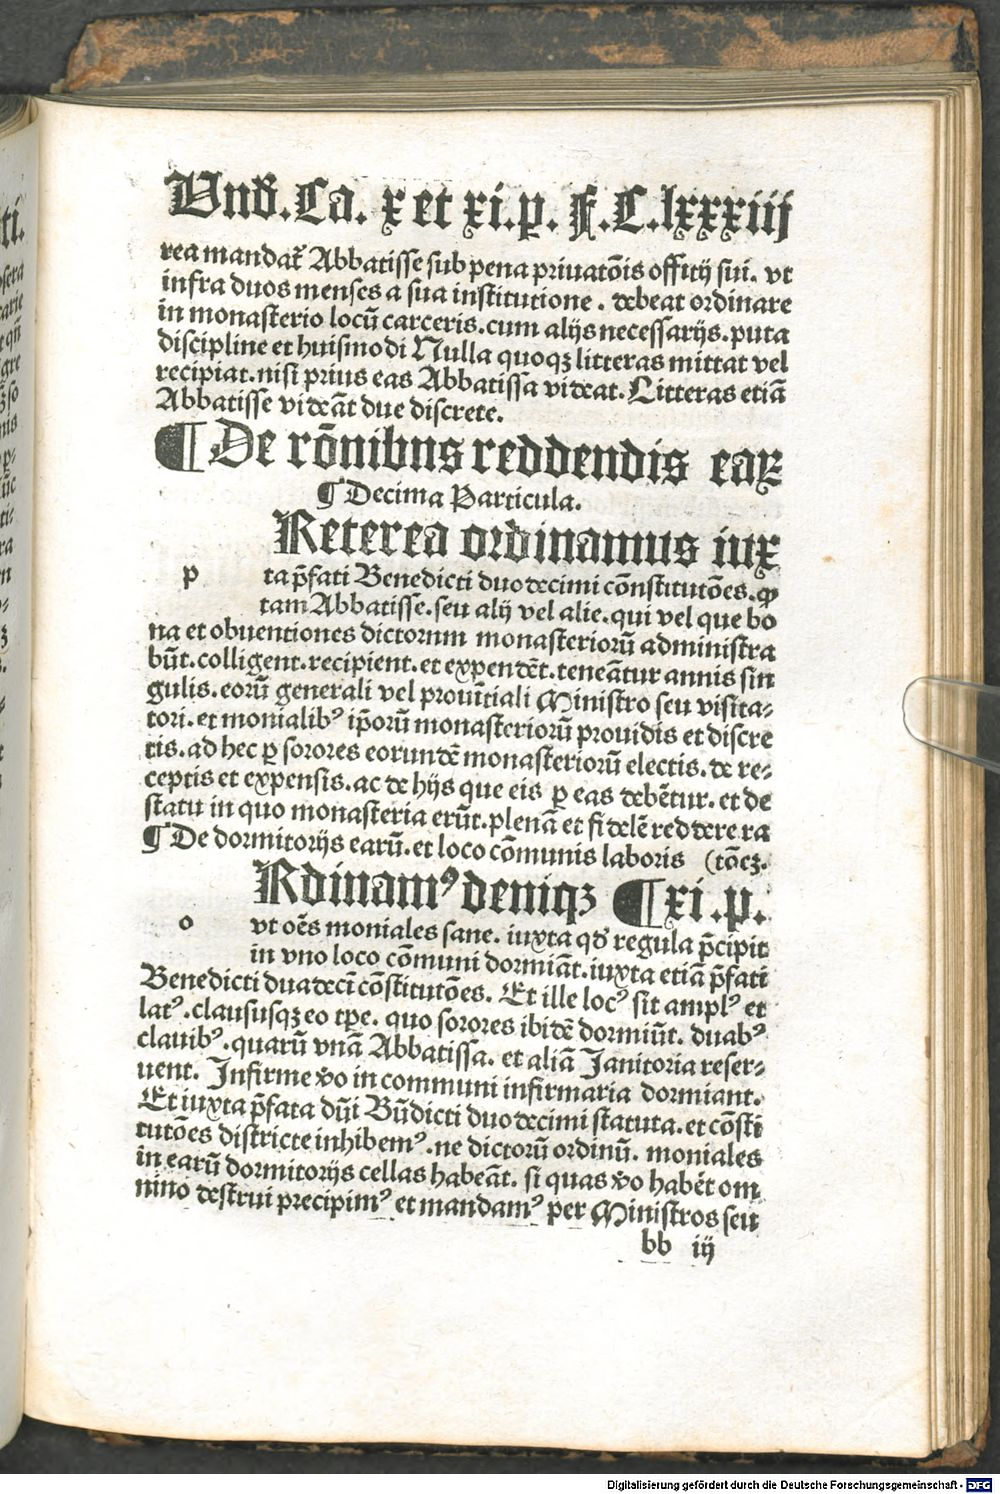 Undᷣ. Ca. x et xi. p. F. C. lxxxiij
rea mandat᷑ Abbatisse sub pena priuatōis offitij sui. vt
infra duos menses a sua institutione. debeat ordinare
in monasterio locū carceris. cum alijs necessarijs. puta
discipline et huismodi Nulla quoqꝫ litteras mittat vel
recipiat. nisi prius eas Abbatissa videat. Litteras etiā
Abbatisse videāt due discrete.
¶ De rōnibus reddendis eaꝝ
¶ Decima Particula.
Reterea ordinamus iux
p ta p̄fati Benedicti duodecimi cōnstitutōes. ꝙ
tam Abbatisse. seu alij vel alie. qui vel que bo
na et obuentiones dictorum monasteriorū administra
būt. colligent. recipient. et expendēt. teneātur annis sin
gulis. eorū generali vel prouītiali Ministro seu visita⸗
tori. et monialibꝰ ip̄orū monasteriorū prouidis et discre
tis. ad hec ꝑ sorores eorundē monasteriorū electis. de re⸗
ceptis et expensis. ac de hijs que eis ꝑ eas debētur. et de
statu in quo monasteria erūt. plenā et fidelē reddere ra
¶ De dormitorijs earū. et loco cōmunis laboris (tōeꝫ.
Rdinamꝰ deniqꝫ ¶ xi. p.
o vt oēs moniales sane. iuxta qđ regula p̄cipit
in vno loco cōmuni dormiāt. iuxta etiā p̄fati
Benedicti duadecī cōstitutōes. Et ille locꝰ sit amplꝰ et
latꝰ. claususqꝫ eo tp̄e. quo sorores ibidē dormiūt. duabꝰ
clauibꝰ. quarū vnā Abbatissa. et aliā Janitoria reser⸗
uent. Infirme v̄o in communi infirmaria dormiant.
Et iuxta p̄fata dn̄i Bn̄dicti duodecimi statuta. et cōsti
tutōes districte inhibemꝰ. ne dictorū ordinū. moniales
in earū dormitorijs cellas habeāt. si quas v̄o habēt om
nino destrui precipimꝰ et mandamꝰ per Ministros seu
bb iij
Digitalisierung gefördert durch die Deutsche Forschungsgemeinschaft - DFG